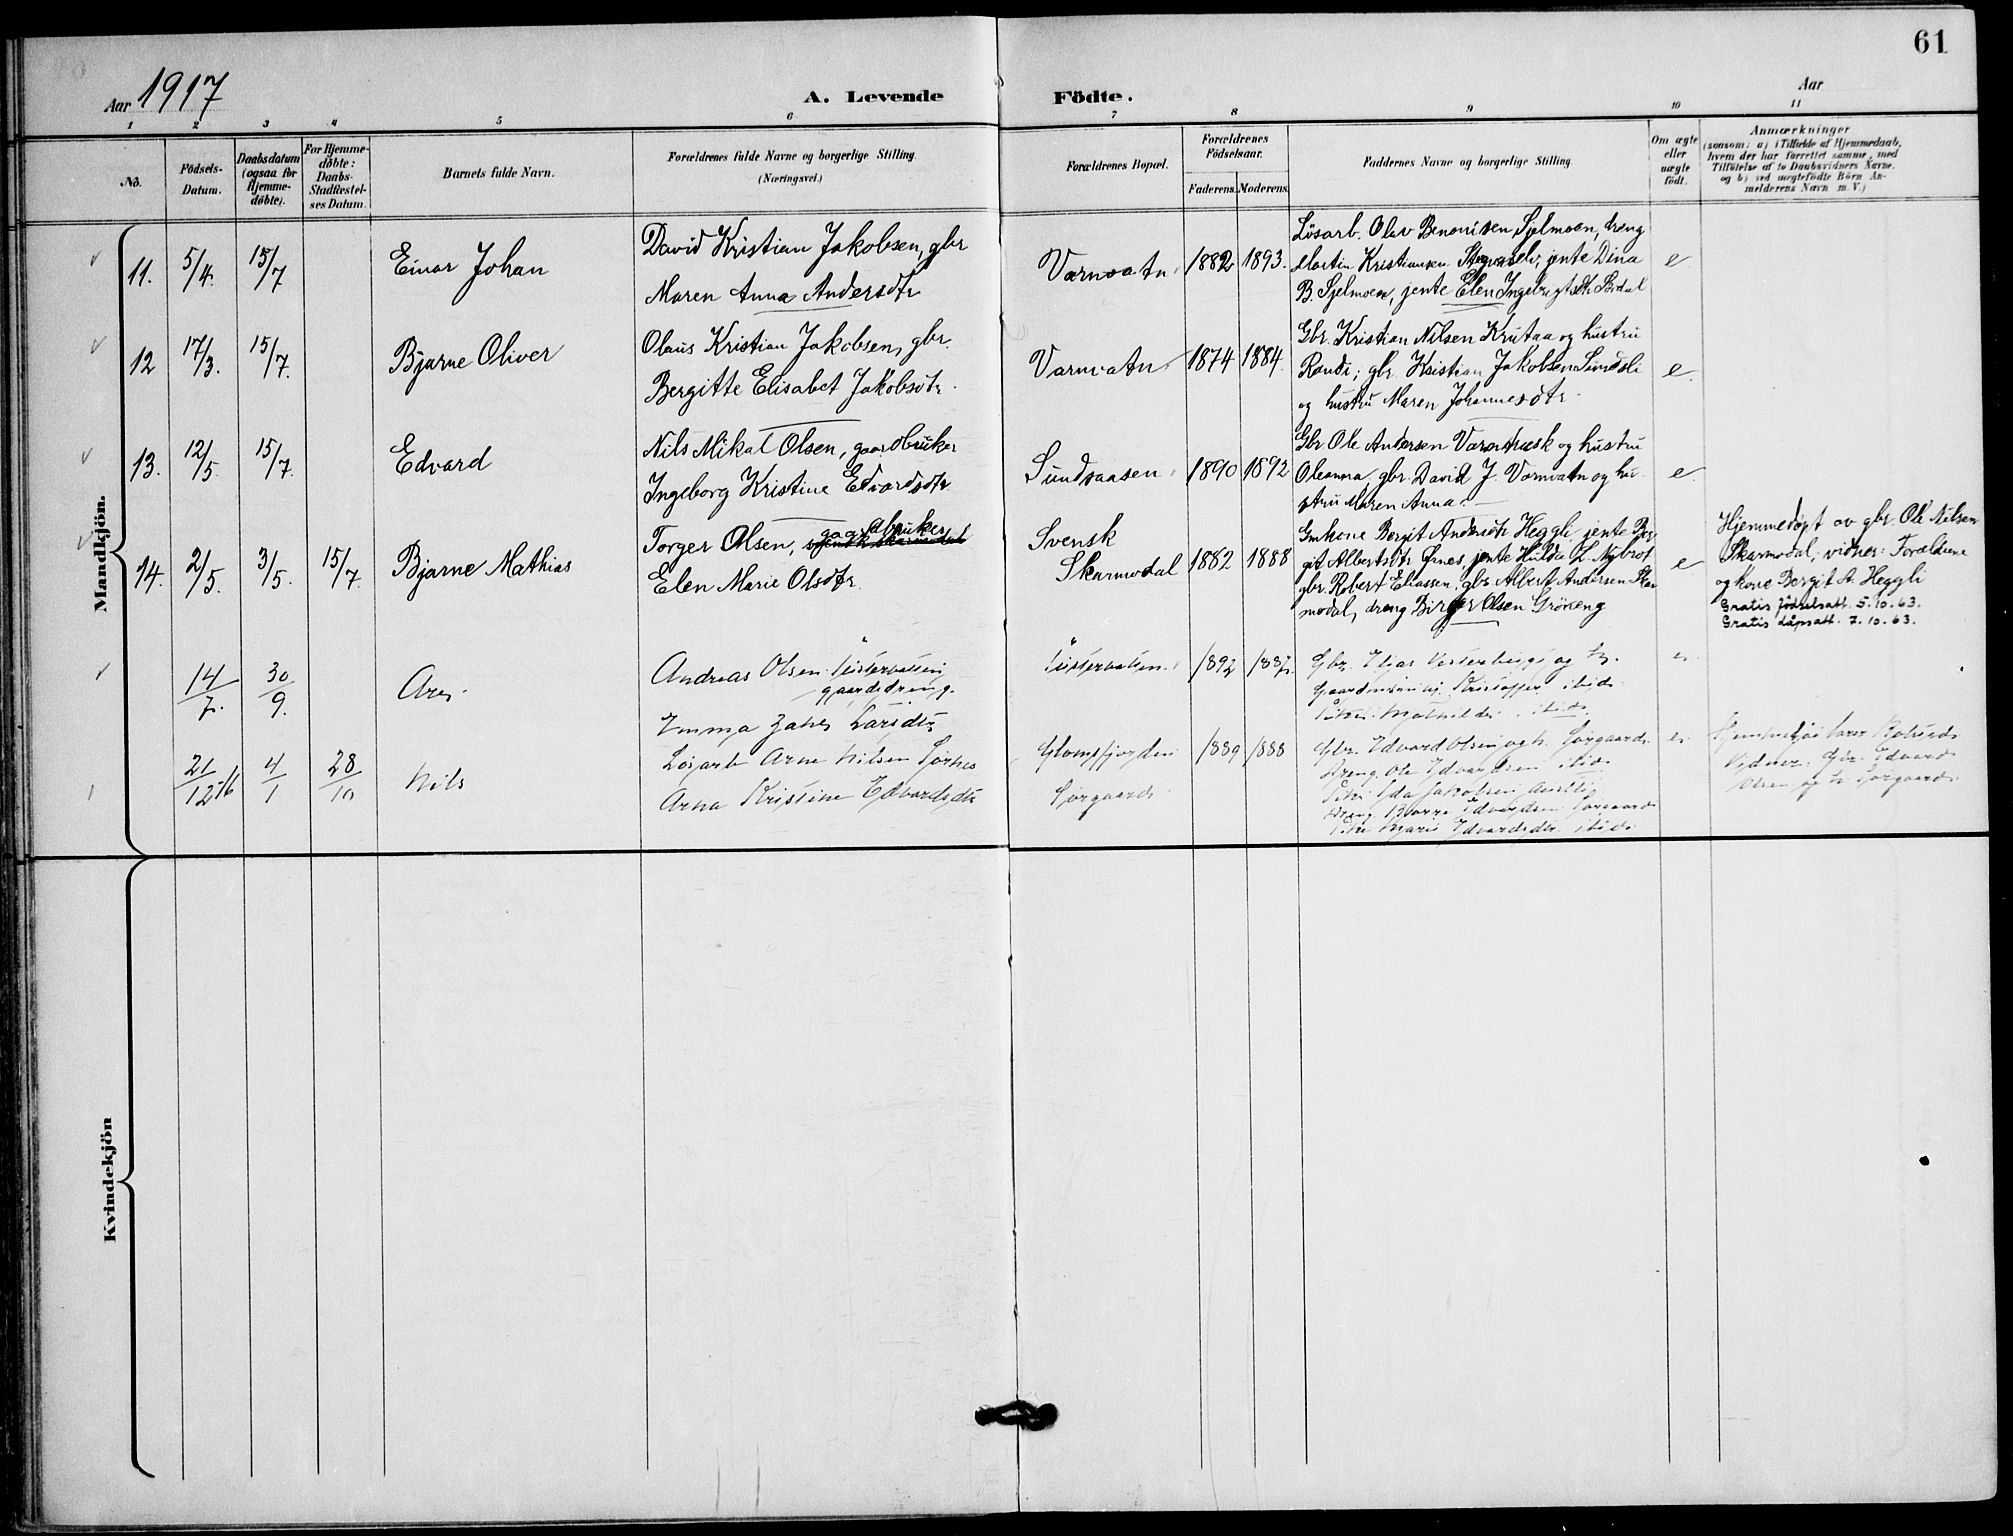 61
Aar 1917
A. Levende
Födte.
Aar
1 2 3 4 5 6 7 8 9 10 11
No.
Födsels-
Datum.
Daabsdatum
(ogsaa for
Hjemme-
döbte).
For Hjemme-
döbte:
Daabs-
Stadfæstel-
ses Datum.
Barnets fulde Navn.
Forældrenes fulde Navne og borgerlige Stilling.
(Næringsvei.)
Forældrenes Bopæl.
Forældrenes
Födselsaar.
Faderens. Moderens.
Faddernes Navne og borgerlige Stilling.
Om ægte
eller
uægte
födt.
Anmærkninger
(saasom: a) i Tilfælde af Hjemmedaab,
hvem der har forrettet samme, med
Tilföielse af to Daabsvidners Navne,
og b) ved uægtefödte Börn An-
melderens Navn m. V.)
Mandkjön.
11. 5/4. 15/7 Einar Johan
David Kristian Jakobsen, gbr
Maren Anna Andersdtr
Varnvatn 1882 1893.
Lösarb. Olav Benonisen Sjelmoen, dreng
Martin Kristiansen jente Dina
B. Sjelmoen, jente Elen Ingebrigtsdtr
e
12 17/3. 15/7. Bjarne Oliver
Olaus Kristian Jakobsen, gbr.
Bergitte Elisabet Jakobsdtr.
Varnvatn 1874 1884.
Gbr. Kristian Nilsen Krutaa og hustru
Randi; gbr. Kristian Jakobsen Sundsli
og hustru Maren Johannesdtr.
e.
13. 12/5. 15/7. Edvard
Nils Mikal Olsen, gaardbruker
Ingeborg Kristine Edvardsdtr
Sundsaasen 1890 1892
Gbr Ole Andersen og hustru
Oleanna, gbr. David J. Varnvatn og hu-
stru Maren Anna.
e.
14. 2/5. 3/5. 15/7. Bjarne Mathias
Torger Olsen, gaardbruker
Elen Marie Olsdtr.
Svensk
Skarmodal 1882 1888
Gmkone Bergit Andersdtr Heggli, jente Ber-
git Albertsdtr jente Hilda L. Nybrot
gbr. Robert Eliassen, gbr Albert Andersen Skar-
modal, dreng Birger Olsen Gröneng
e
Hjemmedøpt av gbr. Ole Nilsen
Skarmodal, vidner: Forældrene
og kone Bergit A. Heggli
Gratis födselsatt. 5.10.63.
Gratis dåpsatt. 7.10.63.
14/7. 30/9.
Andreas Olsen
gaardsdreng.
Emma
1892
Gbr.
Kristoffer ibid.
ibid.
21/12-16 4/1 28/10 Nils
Løsarb Arne Nilsen
Arna Kristine Edvardsdtr
Glomfjorden 1889 1888
Gbr. Edvard Olsen og h.
Dreng Ole Edvardsen ibid.
Jakobsen
Marie Edvardsdtr ibid.
Vidner. Gbr. Edvard
Olsen og h.
Kvindekjön